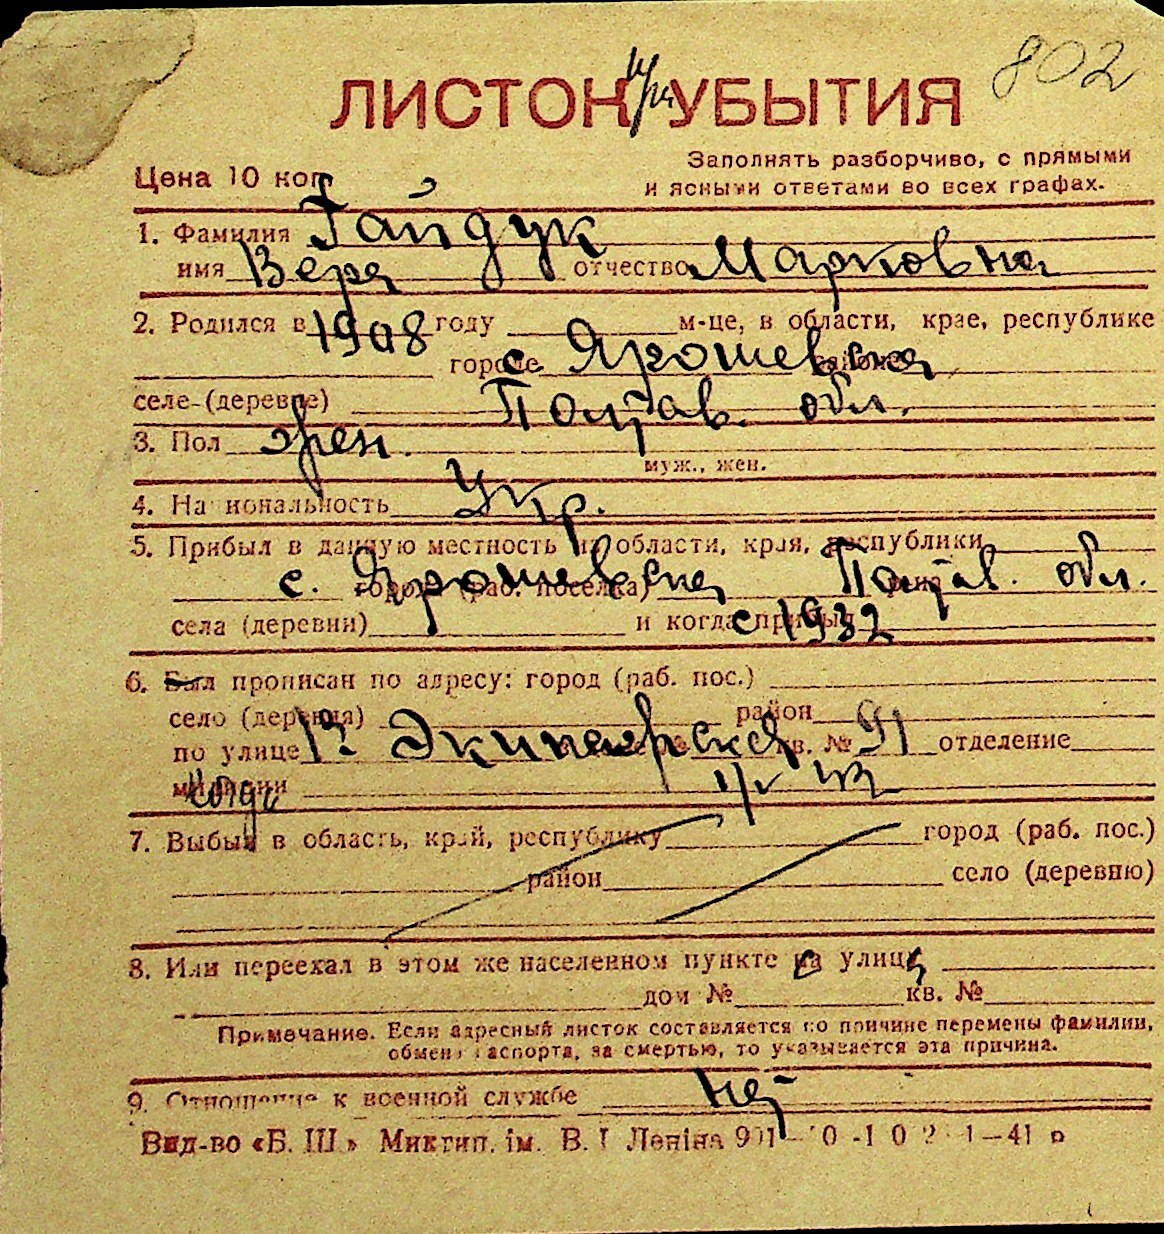 802
ЛИСТОК при УБЫТИЯ
Цена 10 коп.
Заполнять разборчиво, с прямыми
и ясными ответами во всех графах.
1. Фамилия Гайдук
имя Вера отчество Марковна
2. Родился в 1908 году м-це, в области, крае, республике
городе с. Ярошевка районе
селе-(деревне) Полтав. обл.
3. Пол жен.
муж., жен.
4. Национальность Укр.
5. Прибыл в данную местность из области, края, республики
с. Ярошевка города (раб. поселка) района Полтав. обл.
села (деревни) и когда прибыл с 1932
6. Был прописан по адресу: город (раб. пос.)
село (деревня) район
по улице В. Экипажская кв. № 91 отделение
милиции
7. Выбыл в область, край, республику город (раб. пос.)
район село (деревню)
8. Или переехал в этом же населенном пункте на улицу
дом № кв. №
Примечание. Если адресный листок составляется по причине перемены фамилии,
обмена паспорта, за смертью, то указывается эта причина.
9. Отношение к военной службе нет
Вид-во «Б. Ш.» Миктип. ім. В. І Леніна